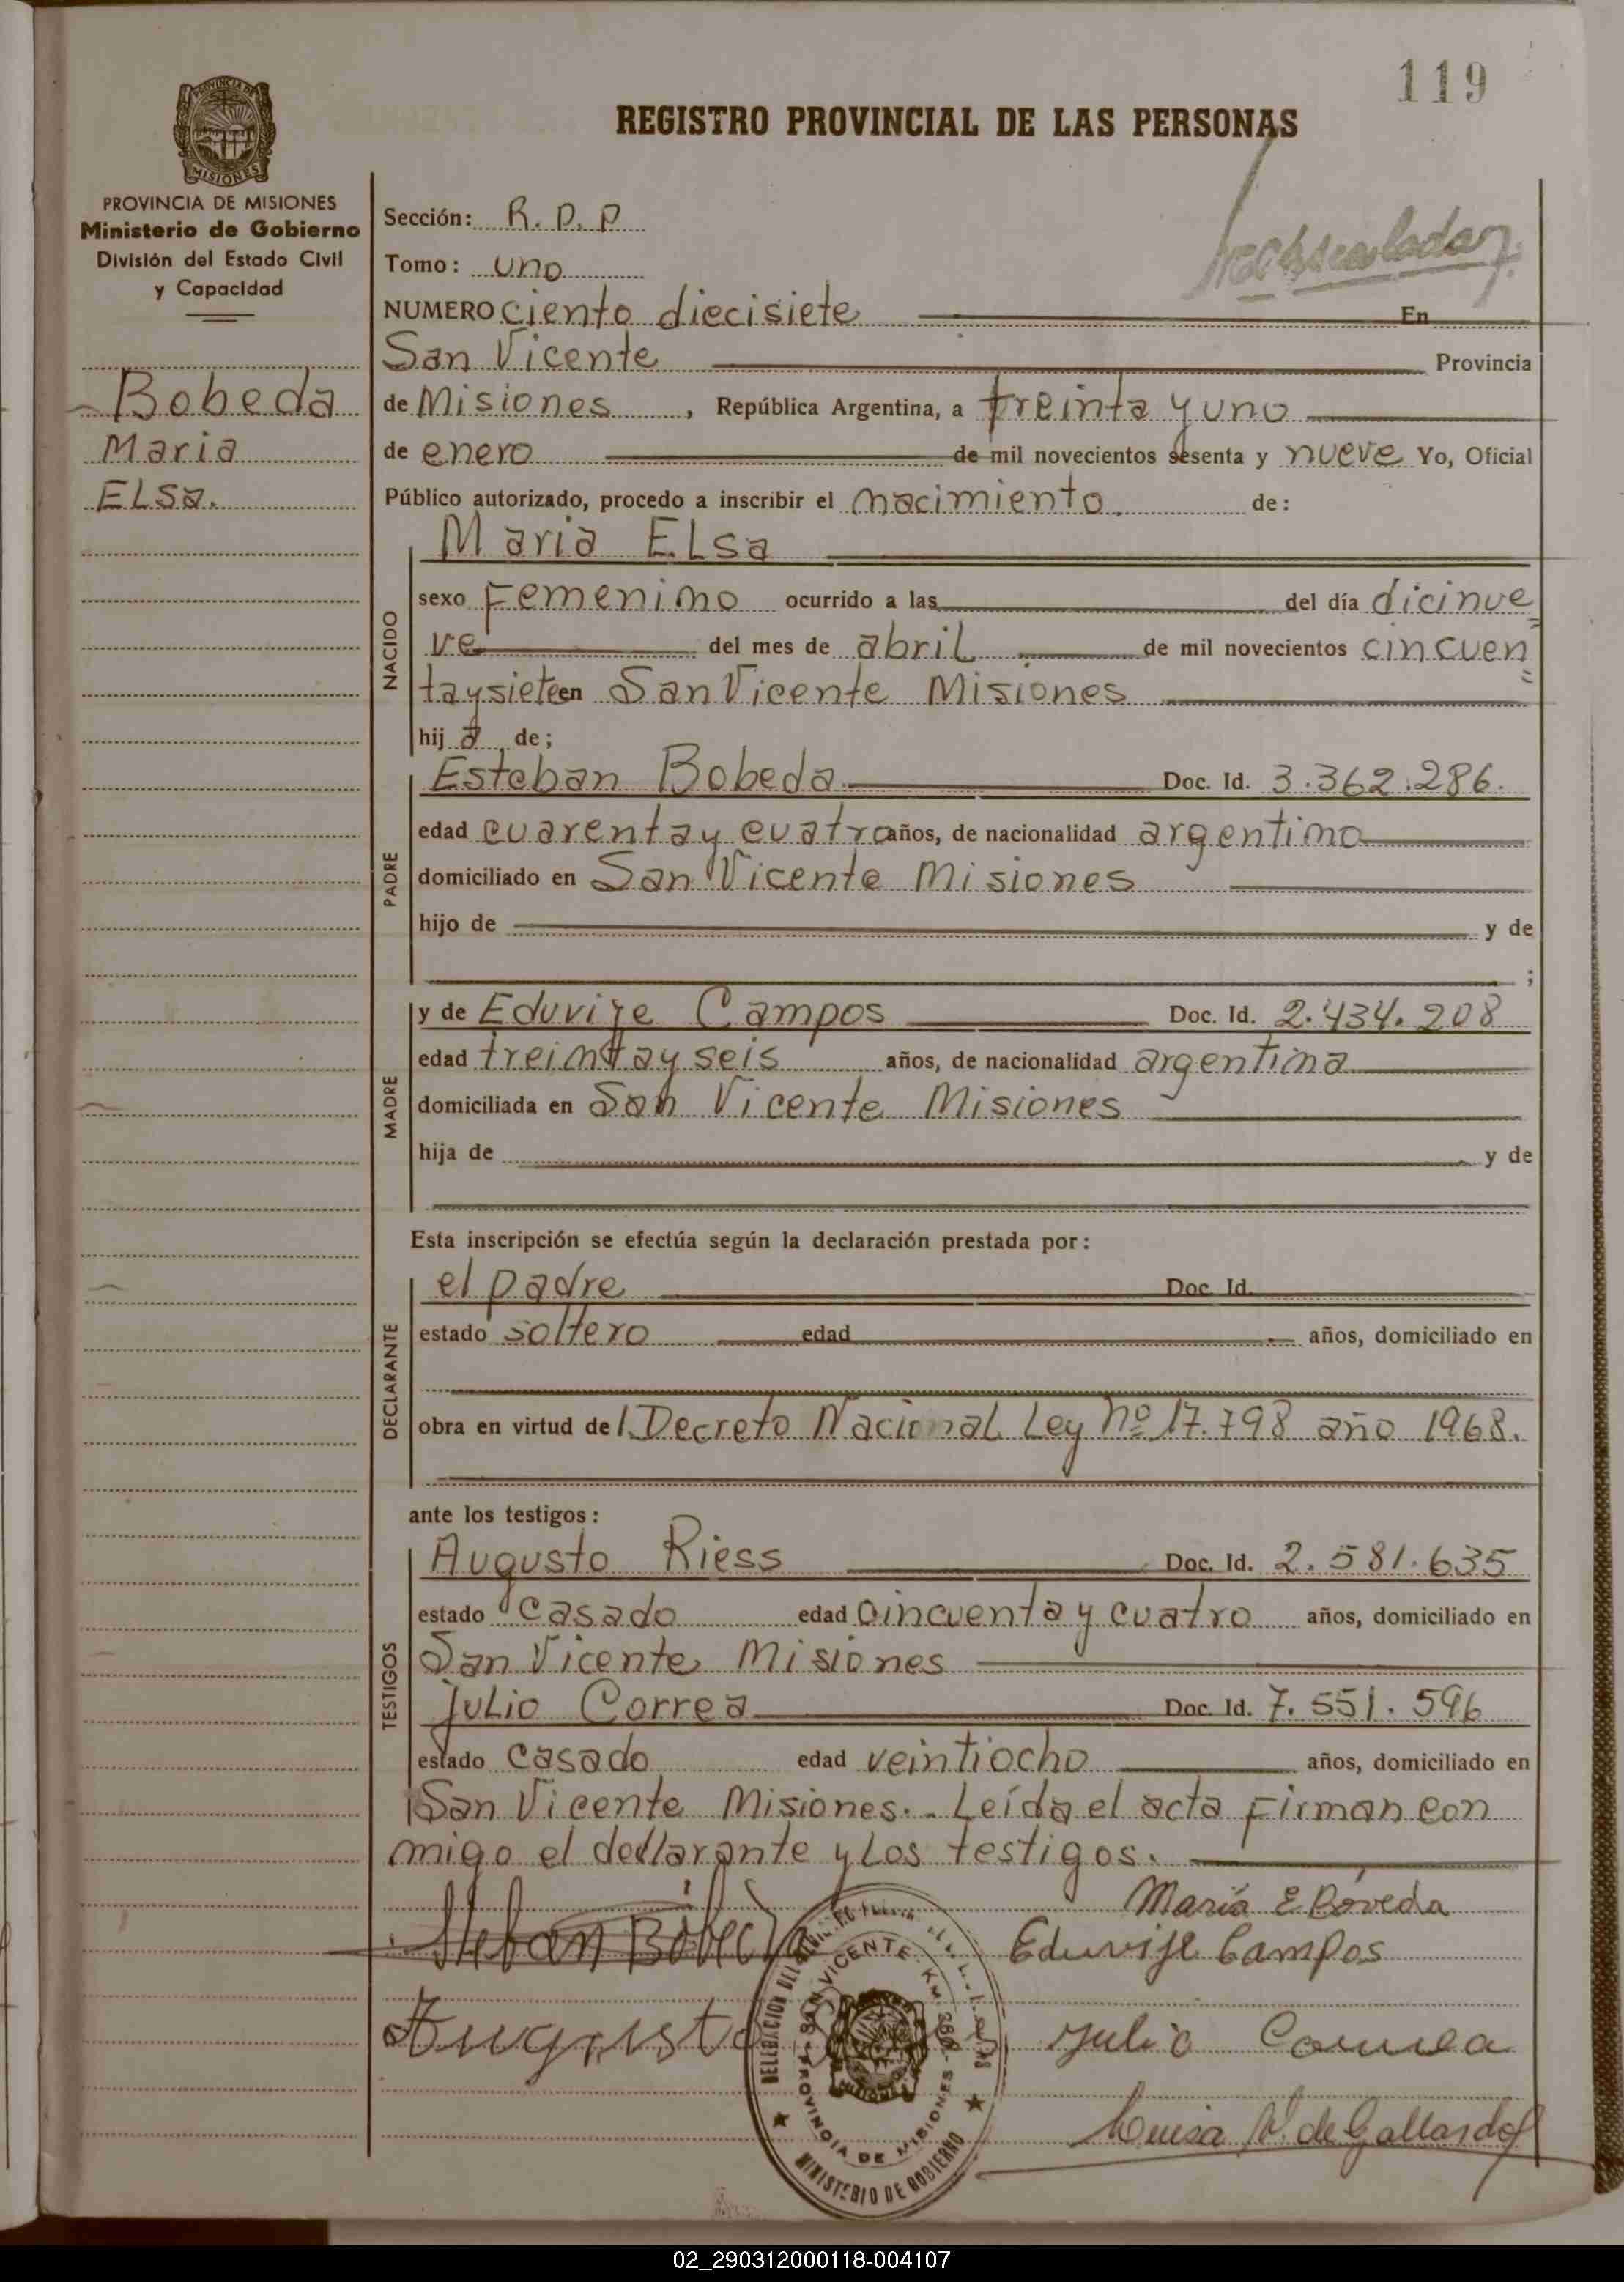 119
REGISTRO PROVINCIAL DE LAS PERSONAS
PROVINCIA DE MISIONES
Ministerio de Gobierno
División del Estado Civil
y Capacidad
Bobeda
Maria
ELSa.
Sección: R.P.P
Tomo: uno
NUMERO ciento diecisiete En
San Vicente Provincia
de Misiones, República Argentina, a treinta y uno
de enero de mil novecientos sesenta y nueve Yo, Oficial
Público autorizado, procedo a inscribir el nacimiento. de:
Maria ELsa
NACIDO
sexo Femenino ocurrido a las del día dicinue=
ve del mes de abril de mil novecientos cincuen=
taysiete en San Vicente Misiones
hija de;
PADRE
Esteban Bobeda Doc. Id. 3.362.286.
edad cuarentay cuatro años, de nacionalidad argentino
domiciliado en San Vicente Misiones
hijo de y de
;
MADRE
y de Eduvije Campos Doc. Id. 2.434.208
edad treintay seis años, de nacionalidad argentina
domiciliada en San Vicente Misiones
hija de y de
Esta inscripción se efectúa según la declaración prestada por:
DECLARANTE
el padre Doc. Id.
estado soltero edad años, domiciliado en
obra en virtud del Decreto Nacional Ley nº 17.798 año 1968.
ante los testigos:
TESTIGOS
Augusto Riess Doc. Id. 2.581.635
estado casado edad cincuenta y cuatro años, domiciliado en
San Vicente Misiones
Julio Correa Doc. Id. 7.551.596
estado casado edad veintiocho años, domiciliado en
San Vicente Misiones.- Leída el acta Firman con
migo el declarante y Los testigos.
María E Bóveda
Eduvije Campos
Augusto
Julio Correa
Luisa de Gallardo
SAN VICENTE KM.
PROVINCIA DE MISIONES
MINISTERIO DE GOBIERNO
02_290312000118-004107